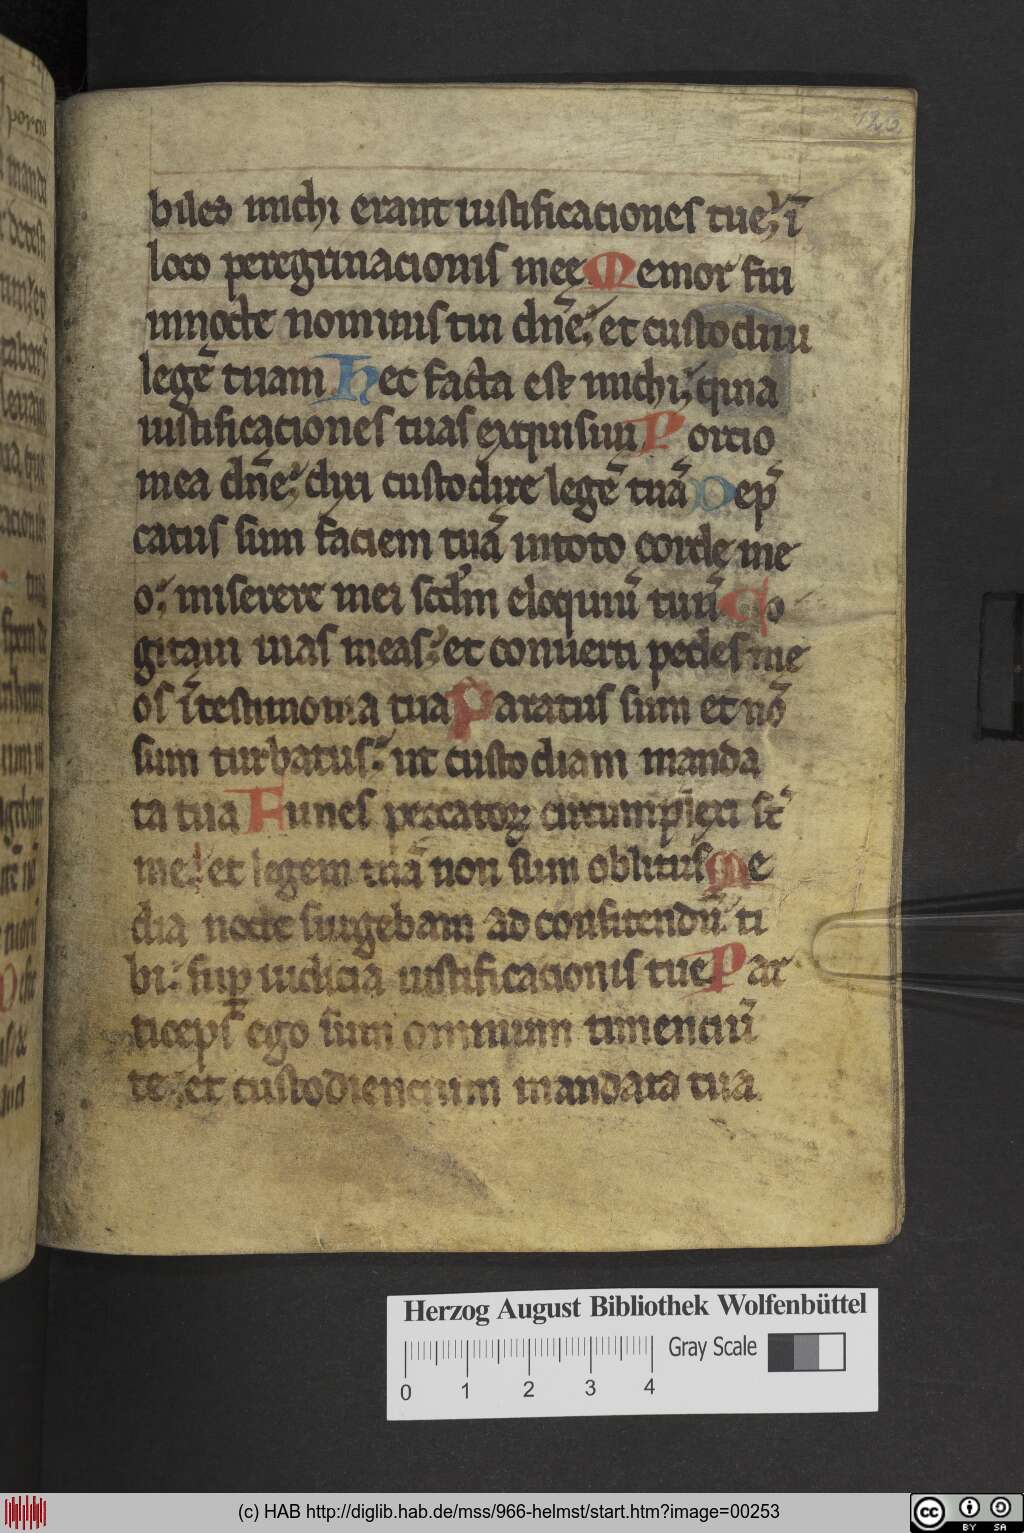 122
biles michi erant iustificaciones tue; ī
loco peregrinacionis mee Memor fui
in nocte nominis tui dn̄e; et custodiui
legē tuam Hec facta est michi; quia
iustificaciones tuas exquisiui Portio
mea dn̄e; dixi custodire legē tuā Dep̄
catus sum faciem tuā in toto corde me
o; miserere mei scd̄m eloquiū tuū Co
gitaui uias meas; et conuerti pedes me
os ī testimonia tua Paratus sum et nō
sum turbatus; ut custodiam manda
ta tua Funes peccatoꝝ circumplexi st̄
me; et legem tuā non sum oblitus Me
dia nocte surgebam ad confitendū ti
bi; sup iudicia iustificacionis tue Par
ticeps ego sum omnium timenciū
te; et custodiencium mandata tua
Herzog August Bibliothek Wolfenbüttel
Gray Scale
0 1 2 3 4
(c) HAB http://diglib.hab.de/mss/966-helmst/start.htm?image=00253
cc BY SA